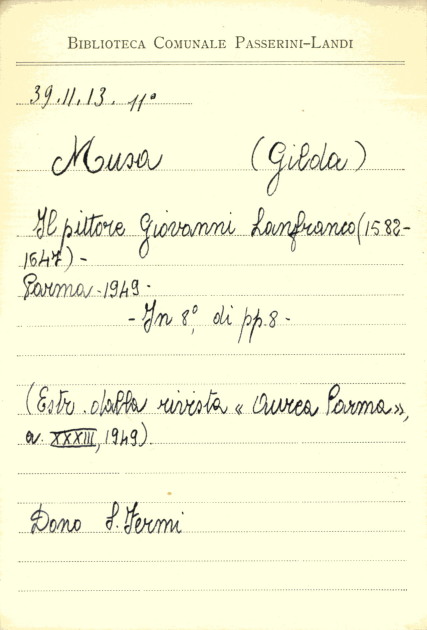 BIBLIOTECA COMUNALE PASSERINI-LANDI
39.11.13. 11°
Musa (Gilda)
Il pittore Giovanni Lanfranco (1582-
1647) -
Parma - 1949 -
- In 8°, di pp. 8 -
(Estr. dalla rivista « Aurea Parma »,
a. XXXIII, 1949).
Dono S. Fermi